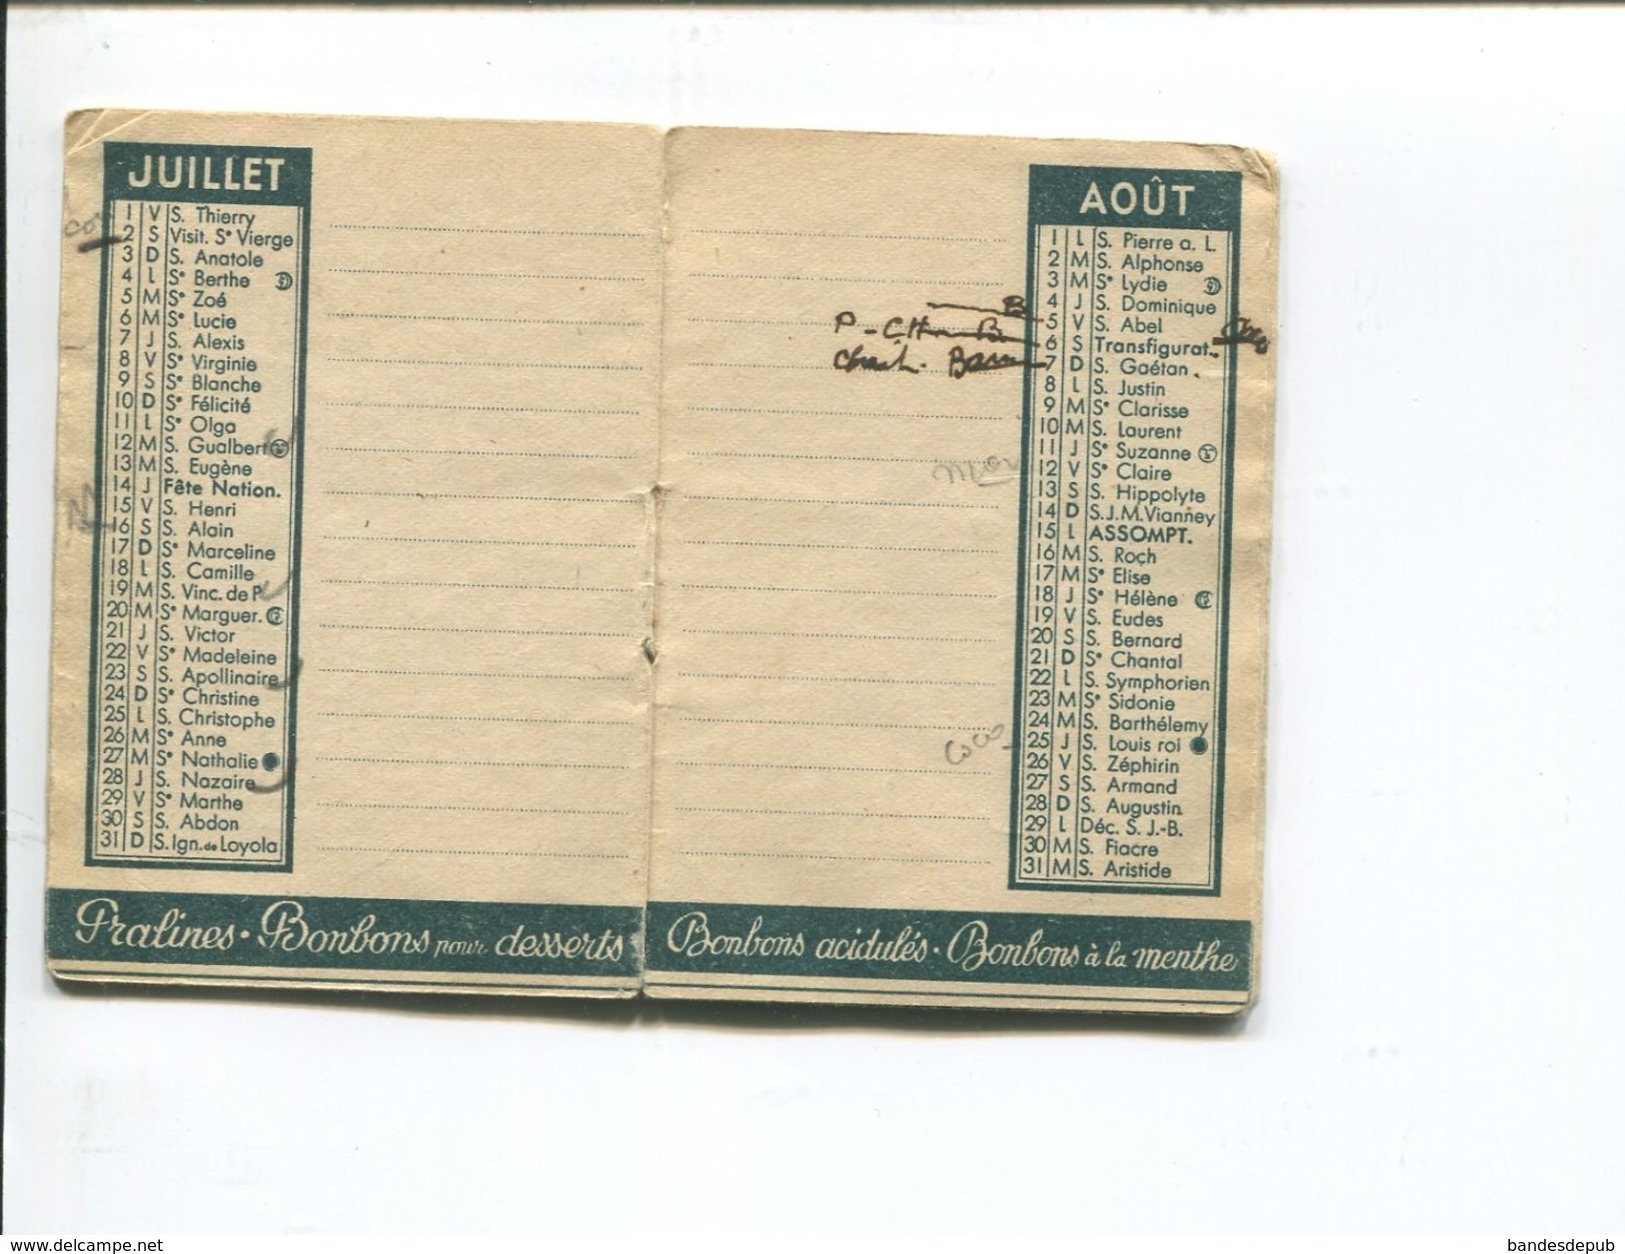 JUILLET
1 V S. Thierry
2 S Visit. Sᵉ Vierge
3 D S. Anatole
4 L Sᵉ Berthe
5 M Sᵉ Zoé
6 M Sᵉ Lucie
7 J S. Alexis
8 V Sᵉ Virginie
9 S Sᵉ Blanche
10 D Sᵉ Félicité
11 L Sᵉ Olga
12 M S. Gualbert
13 M S. Eugène
14 J Fête Nation.
15 V S. Henri
16 S S. Alain
17 D Sᵉ Marceline
18 L S. Camille
19 M S. Vinc. de P.
20 M Sᵉ Marguer.
21 J S. Victor
22 V Sᵉ Madeleine
23 S S. Apollinaire
24 D Sᵉ Christine
25 L S. Christophe
26 M Sᵉ Anne
27 M Sᵉ Nathalie
28 J S. Nazaire
29 V Sᵉ Marthe
30 S S. Abdon
31 D S. Ign. de Loyola
Pralines • Bonbons pour desserts
AOÛT
1 L S. Pierre a. L
2 M S. Alphonse
3 M Sᵉ Lydie
4 J S. Dominique
B
5 V S. Abel
P - CH B
6 S Transfigurat.
7 D S. Gaétan
8 L S. Justin
9 M Sᵉ Clarisse
10 M S. Laurent
11 J Sᵉ Suzanne
12 V Sᵉ Claire
13 S S. Hippolyte
14 D S. J. M. Vianney
15 L ASSOMPT.
16 M S. Roch
17 M Sᵉ Elise
18 J Sᵉ Hélène
19 V S. Eudes
20 S S. Bernard
21 D Sᵉ Chantal
22 L S. Symphorien
23 M Sᵉ Sidonie
24 M S. Barthélemy
coco
25 J S. Louis roi
26 V S. Zéphirin
27 S S. Armand
28 D S. Augustin
29 L Déc. S. J.-B.
30 M S. Fiacre
31 M S. Aristide
Bonbons acidulés • Bonbons à la menthe
www.delcampe.net
bandesdepub